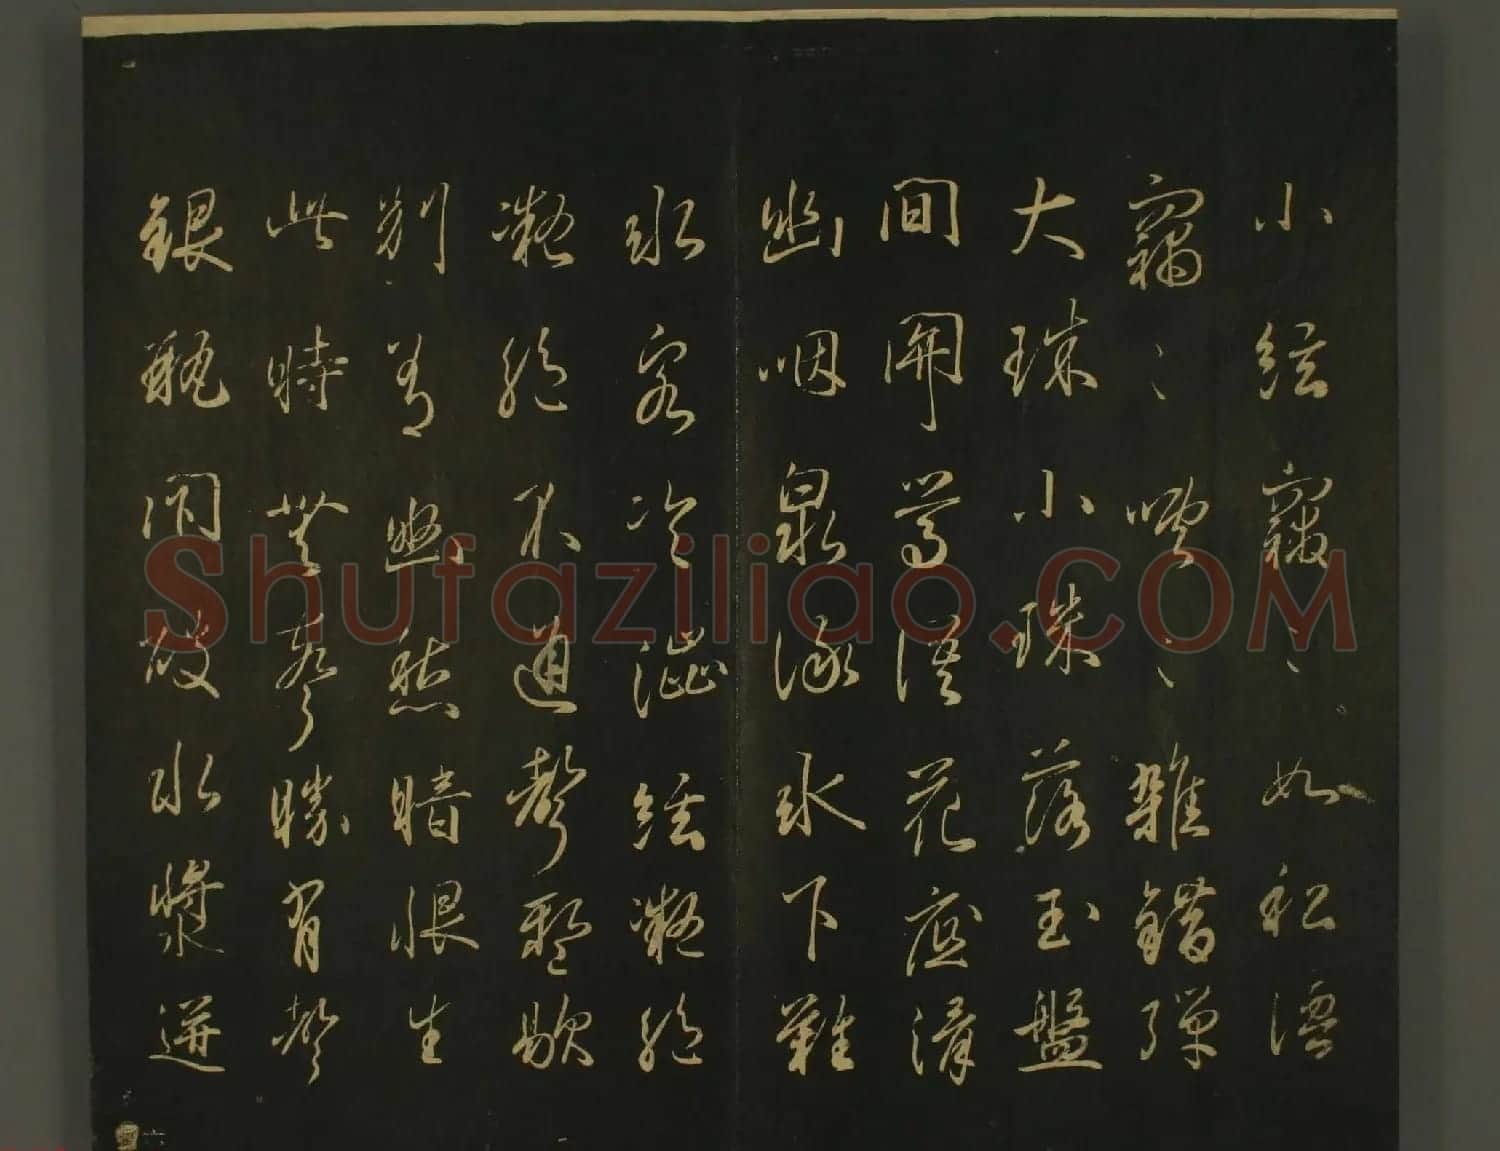 小絃竊〻如私語
竊〻嘈〻雜錯彈
大珠小珠落玉盤
間關鶯語花底滑
幽咽泉流氷下難
水泉冷澀絃凝絶
凝絶不通聲暫歇
別有幽愁暗恨生
此時無聲勝有聲
銀瓶破水漿迸
Shufaziliao.COM